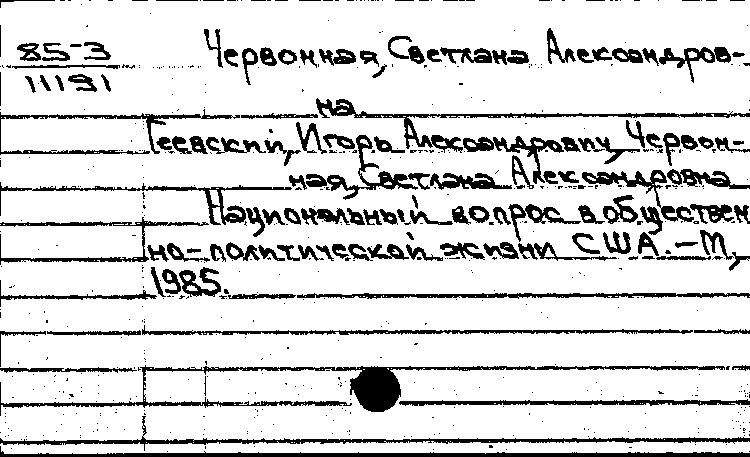 85-3 Червонная, Светлана Александров-
11191
на.
Геевский, Игорь Александрович, Червон-
ная, Светлана Александровна
Национальный вопрос в обществен
но-политической жизни США.-М,
1985.